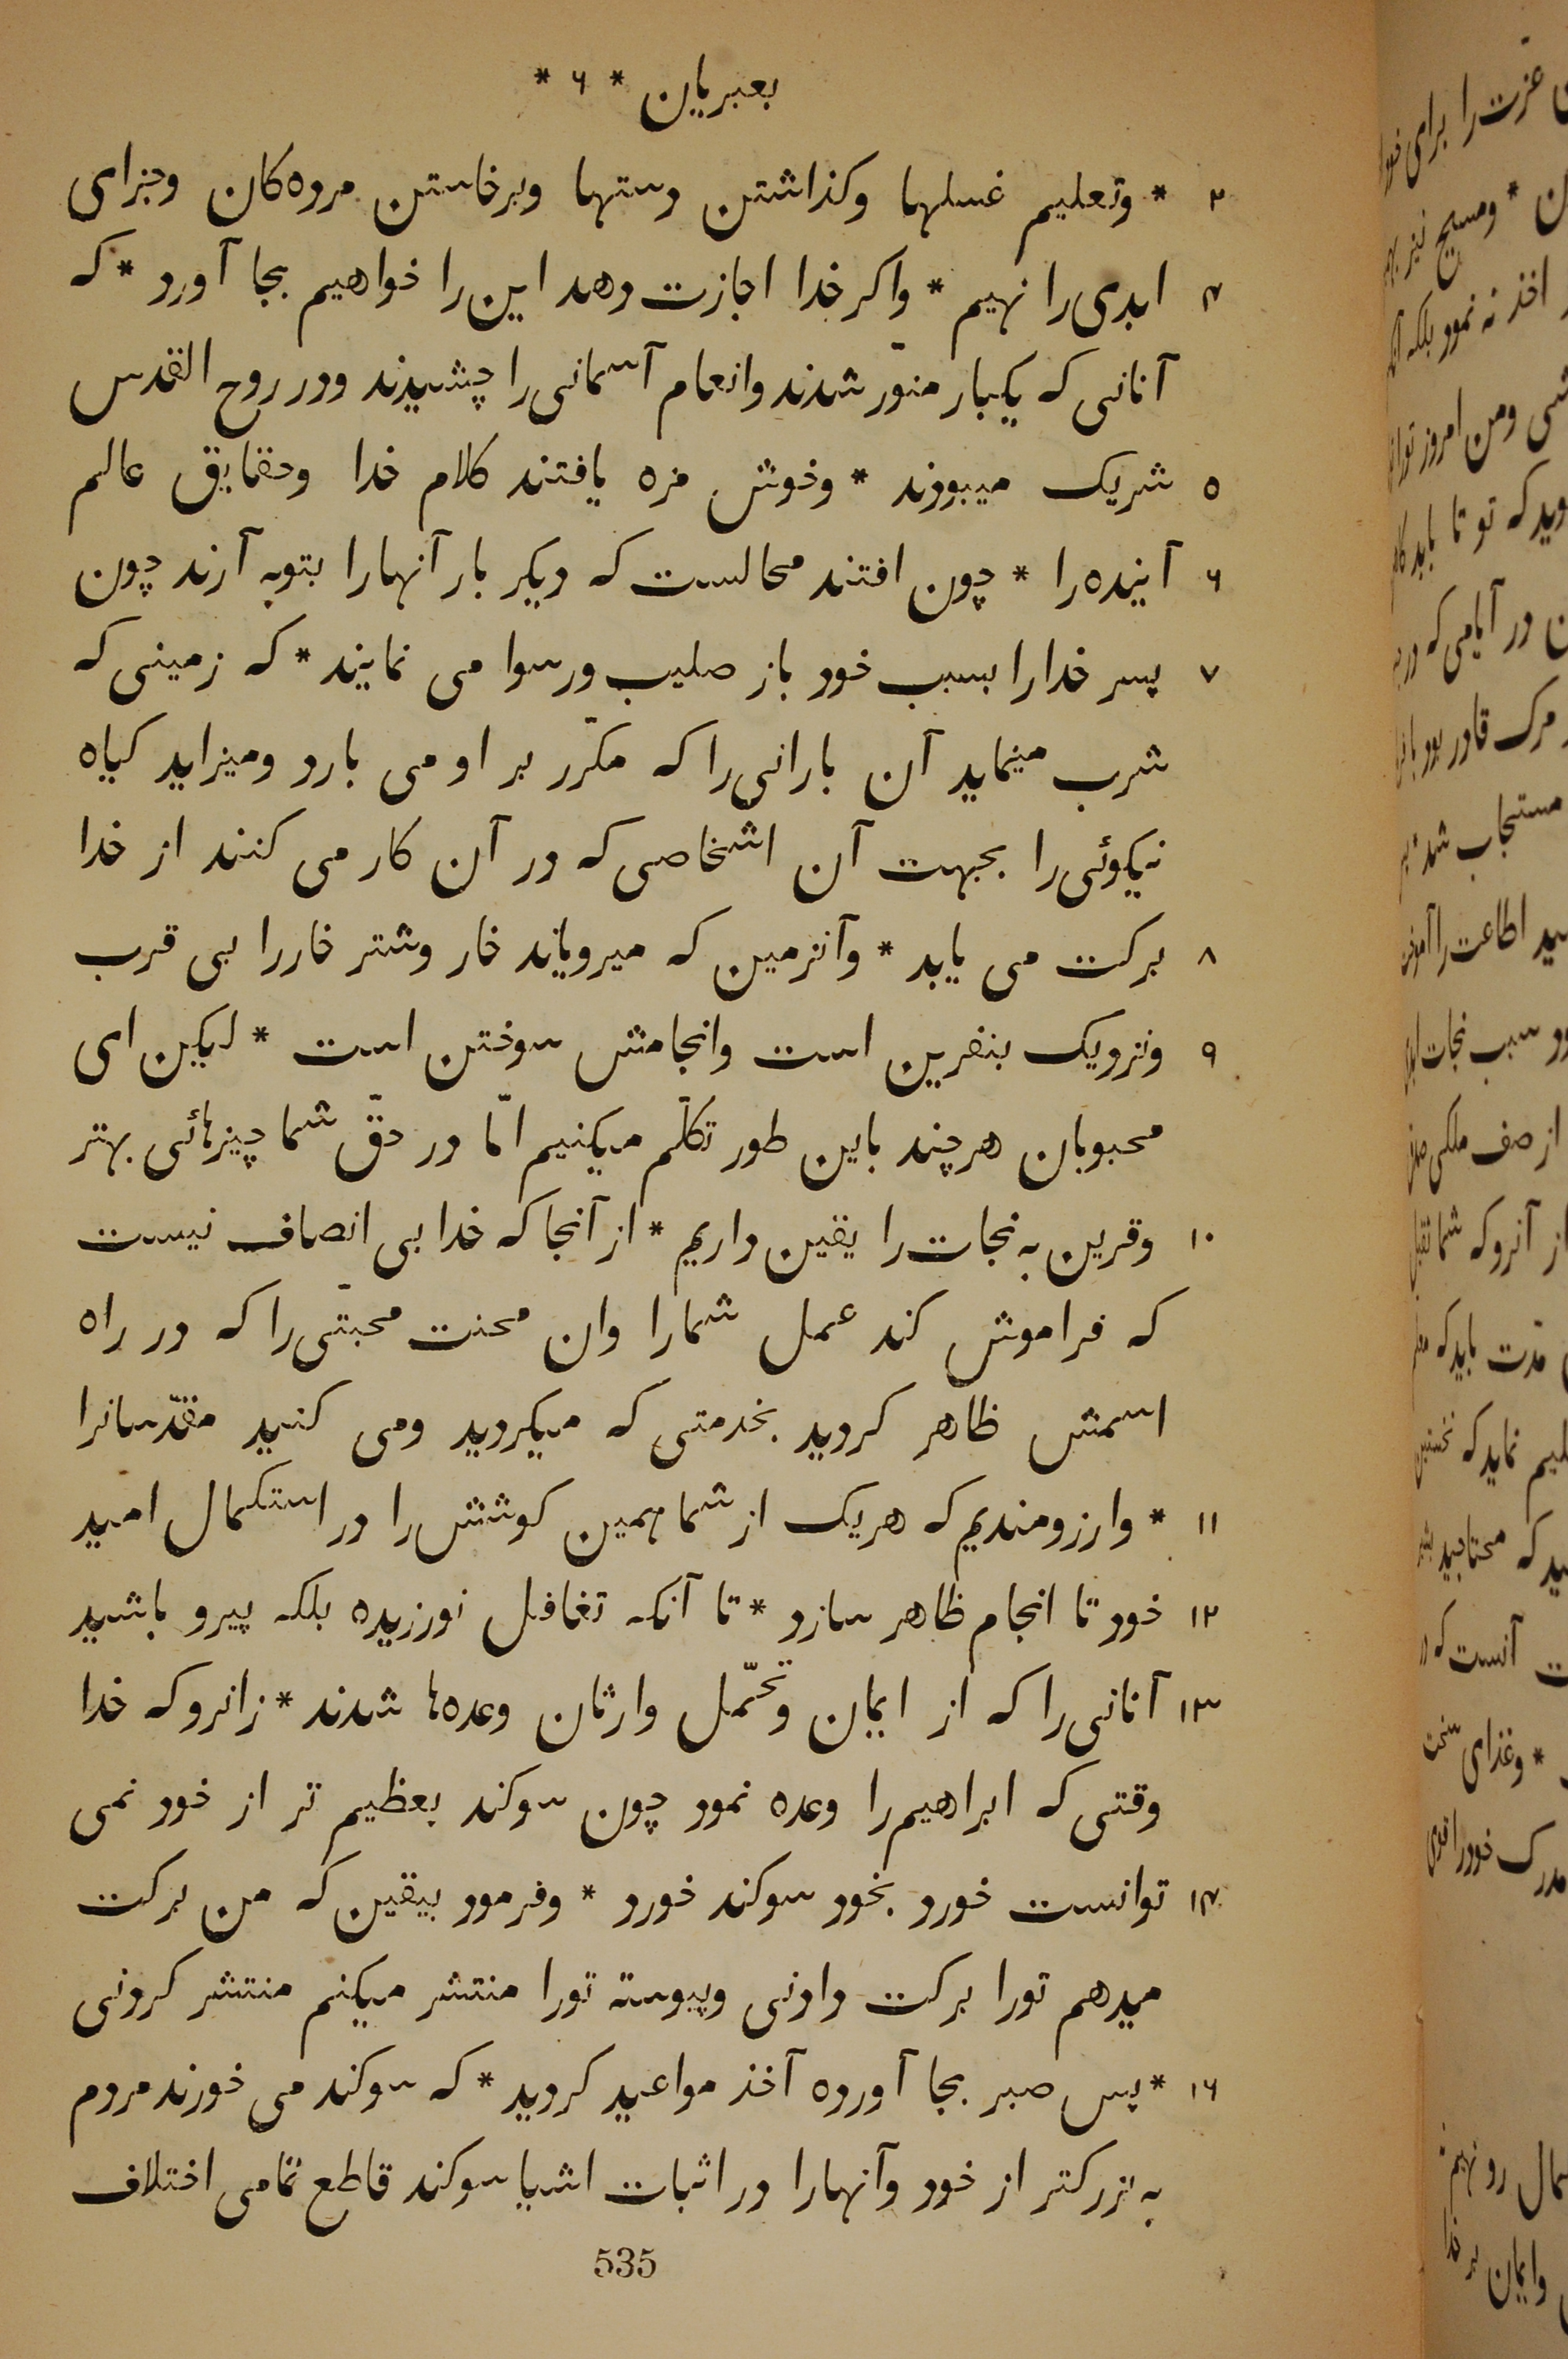 بعبریان * ۶ *
۲ * وتعلیم غسلها وکذاشتن دستها وبرخاستن مرده‌کان وجزای
۴ ابدی را نهیم * واکر خدا اجازت دهد این را خواهیم بجا آورد * که
آنانی که یکبار منوّر شدند وانعام آسمانی را چشیدند ودر روح القدس
۵ شریک میبودند * وخوش مزه یافتند کلام خدا وحقایق عالم
۶ آینده را * چون افتند محالست که دیکر بار آنهارا بتوبه آرند چون
۷ پسر خدارا بسبب خود باز صلیب ورسوا می نمایند * که زمینی که
شرب مینماید آن بارانی را که مکرّر بر او می بارد ومیزاید کیاه
نیکوئی را بجهت آن اشخاصی که در آن کار می کنند از خدا
۸ برکت می یابد * وآنزمین که میرویاند خار وشتر خاررا بی قرب
۹ ونزدیک بنفرین است وانجامش سوختن است * لیکن ای
محبوبان هرچند باین طور تکلّم میکنیم امّا در حقّ شما چیزهائی بهتر
۱۰ وقرین به نجات را یقین داریم * از آنجا که خدا بی انصاف نیست
که فراموش کند عمل شمارا وان محنت محبّتی را که در راه
اسمش ظاهر کردید بخدمتی که میکردید ومی کنید مقدّسانرا
۱۱ * وارزومندیم که هریک از شما همین کوشش را در استکمال امید
۱۲ خود تا انجام ظاهر سازد * تا آنکه تغافل نورزیده بلکه پیرو باشید
۱۳ آنانی را که از ایمان وتحمّل وارثان وعده‌ها شدند * زانرو که خدا
وقتی که ابراهیم را وعده نمود چون سوکند بعظیم تر از خود نمی
۱۴ توانست خورد بخود سوکند خورد * وفرمود بیقین که من برکت
میدهم تورا برکت دادنی وپیوسته تورا منتشر میکنم منتشر کردنی
۱۶ * پس صبر بجا آورده آخذ مواعید کردید * که سوکند می خورند مردم
به بزرکتر از خود وآنهارا در اثبات اشیا سوکند قاطع تمامی اختلاف
535